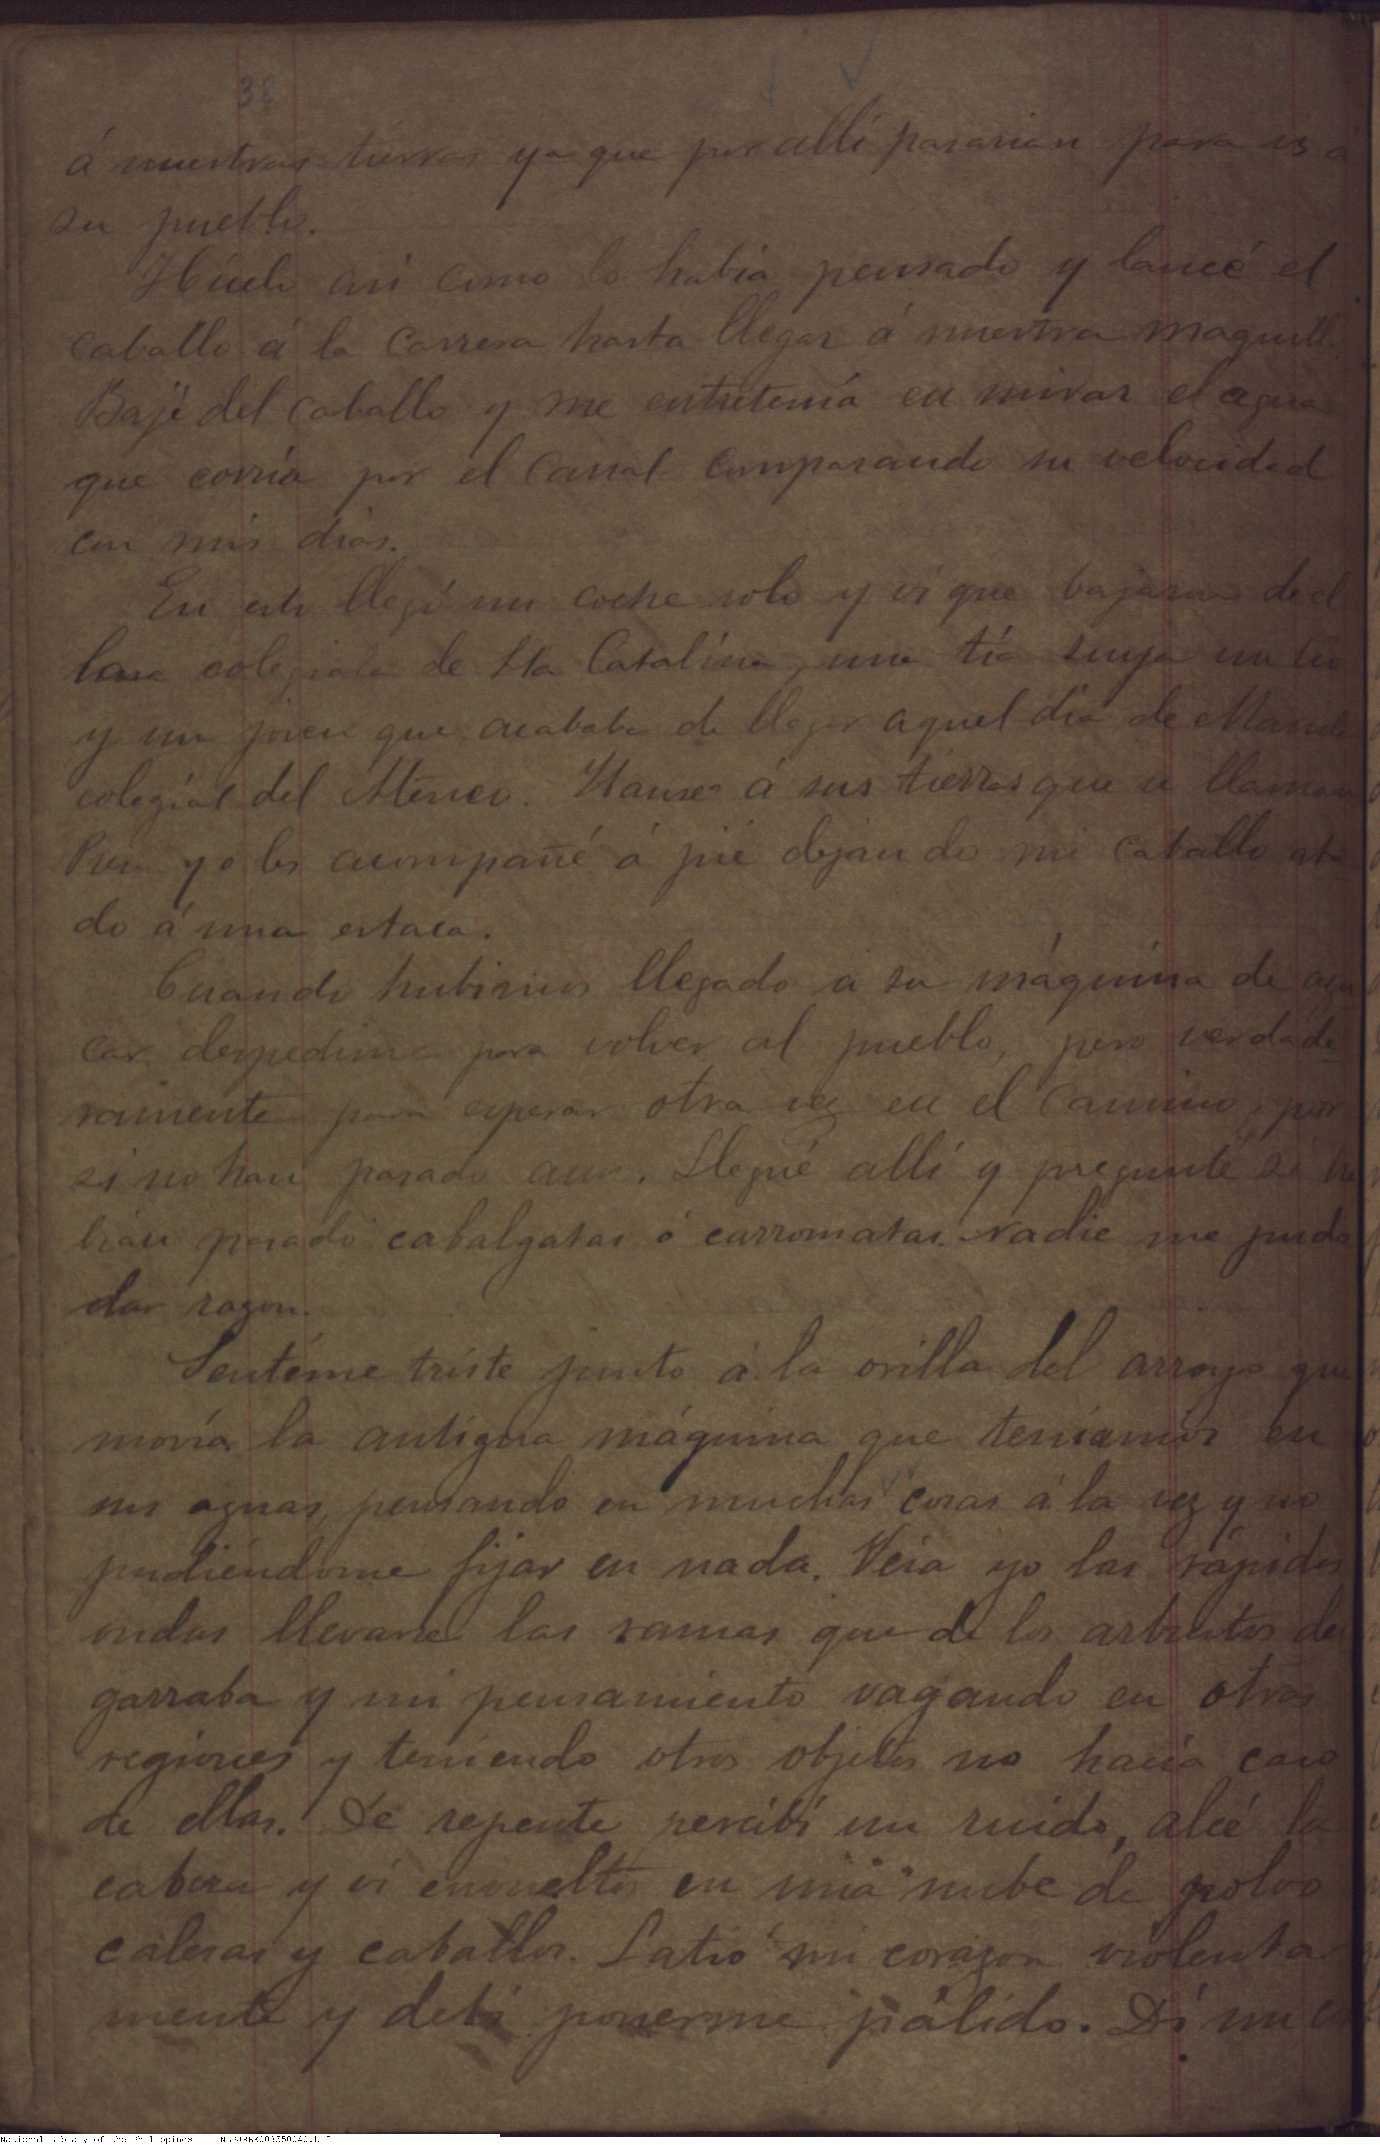 38
á nuestras tierras ya que por allí pasarian para ir á
su pueblo.
Hícelo así como lo habia pensado y lancé el
caballo á la carrera hasta llegar á nuestra maquill.
Bajé del caballo y me entretenía en mirar el agua
que corría por el canal comparando su velocidad
con mis dias.
En esto llegó un coche solo y ví que bajaron de el
colegiala de Sta Catalina, una tía suya un tio
y un joven que acababa de llegar aquel día de Manila
colegial del Ateneo. Ivanse á sus tierras que se llaman
yo les acompañé á pié dejando mi caballo ata
do á una estaca.
Cuando hubimos llegado a su máquina de azu
car despedíme para volver al pueblo, pero verdade
ramente para esperar otra vez en el camino, por
si no han pasado aun. Llegué allí y pregunté si ha
bían pasado cabalgatas ó carromatas. Nadie me pudo
dar razon.
Sentéme triste junto á la orilla del arroyo que
movía la antigua máquina que teníamos en
sus aguas, pensando en muchas cosas á la vez y no
pudiéndome fijar en nada. Veia yo las rápidas
ondas llevarse las ramas que de los arbustos des
garraba y mi pensamiento vagando en otras
regiones y teniendo otros objetos no hacía caso
de ellas. De repente percibí un ruido, alcé la
cabeza y ví envueltos en una nube de polvo
calesas y caballos. Latió mi corazon violenta
mente y debí ponerme pálido. Dí un
National Library of the Philippines